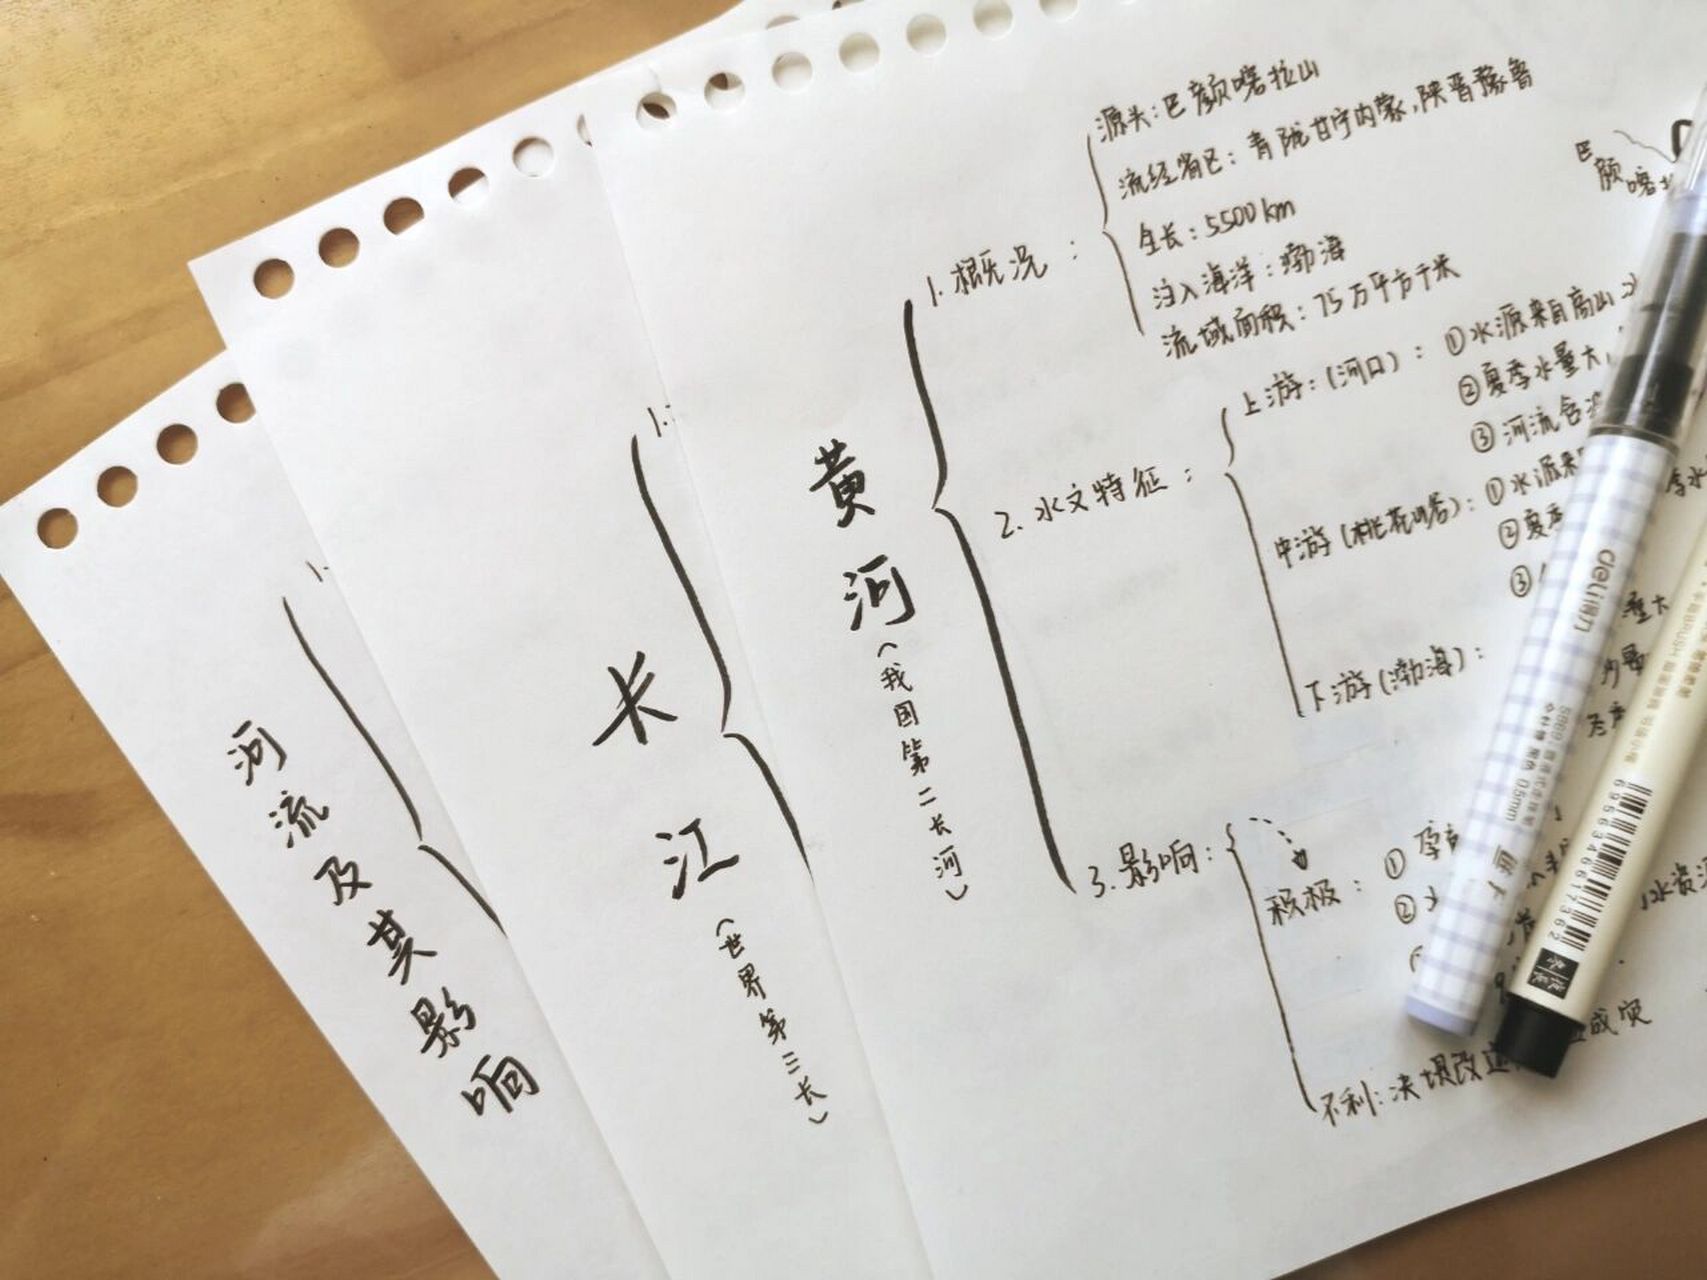 河流及其影响
1.
长江
(世界第三长)
1.
黄河
(我国第二长河)
1.概况：
源头：巴颜喀拉山
流经省区：青陇甘宁内蒙,陕晋豫鲁
全长：5500km
注入海洋：渤海
流域面积：75万平方千米
巴颜喀
2.水文特征：
上游：(河口)：①水源来自高山
②夏季水量大,
③河流含
中游(桃花峪)：①水源来
②夏季
③
下游(渤海)：
量大
3.影响：
积极：①孕
②
水资
不利：决堤改道
成灾
deli得力
0.5mm
6956346617362